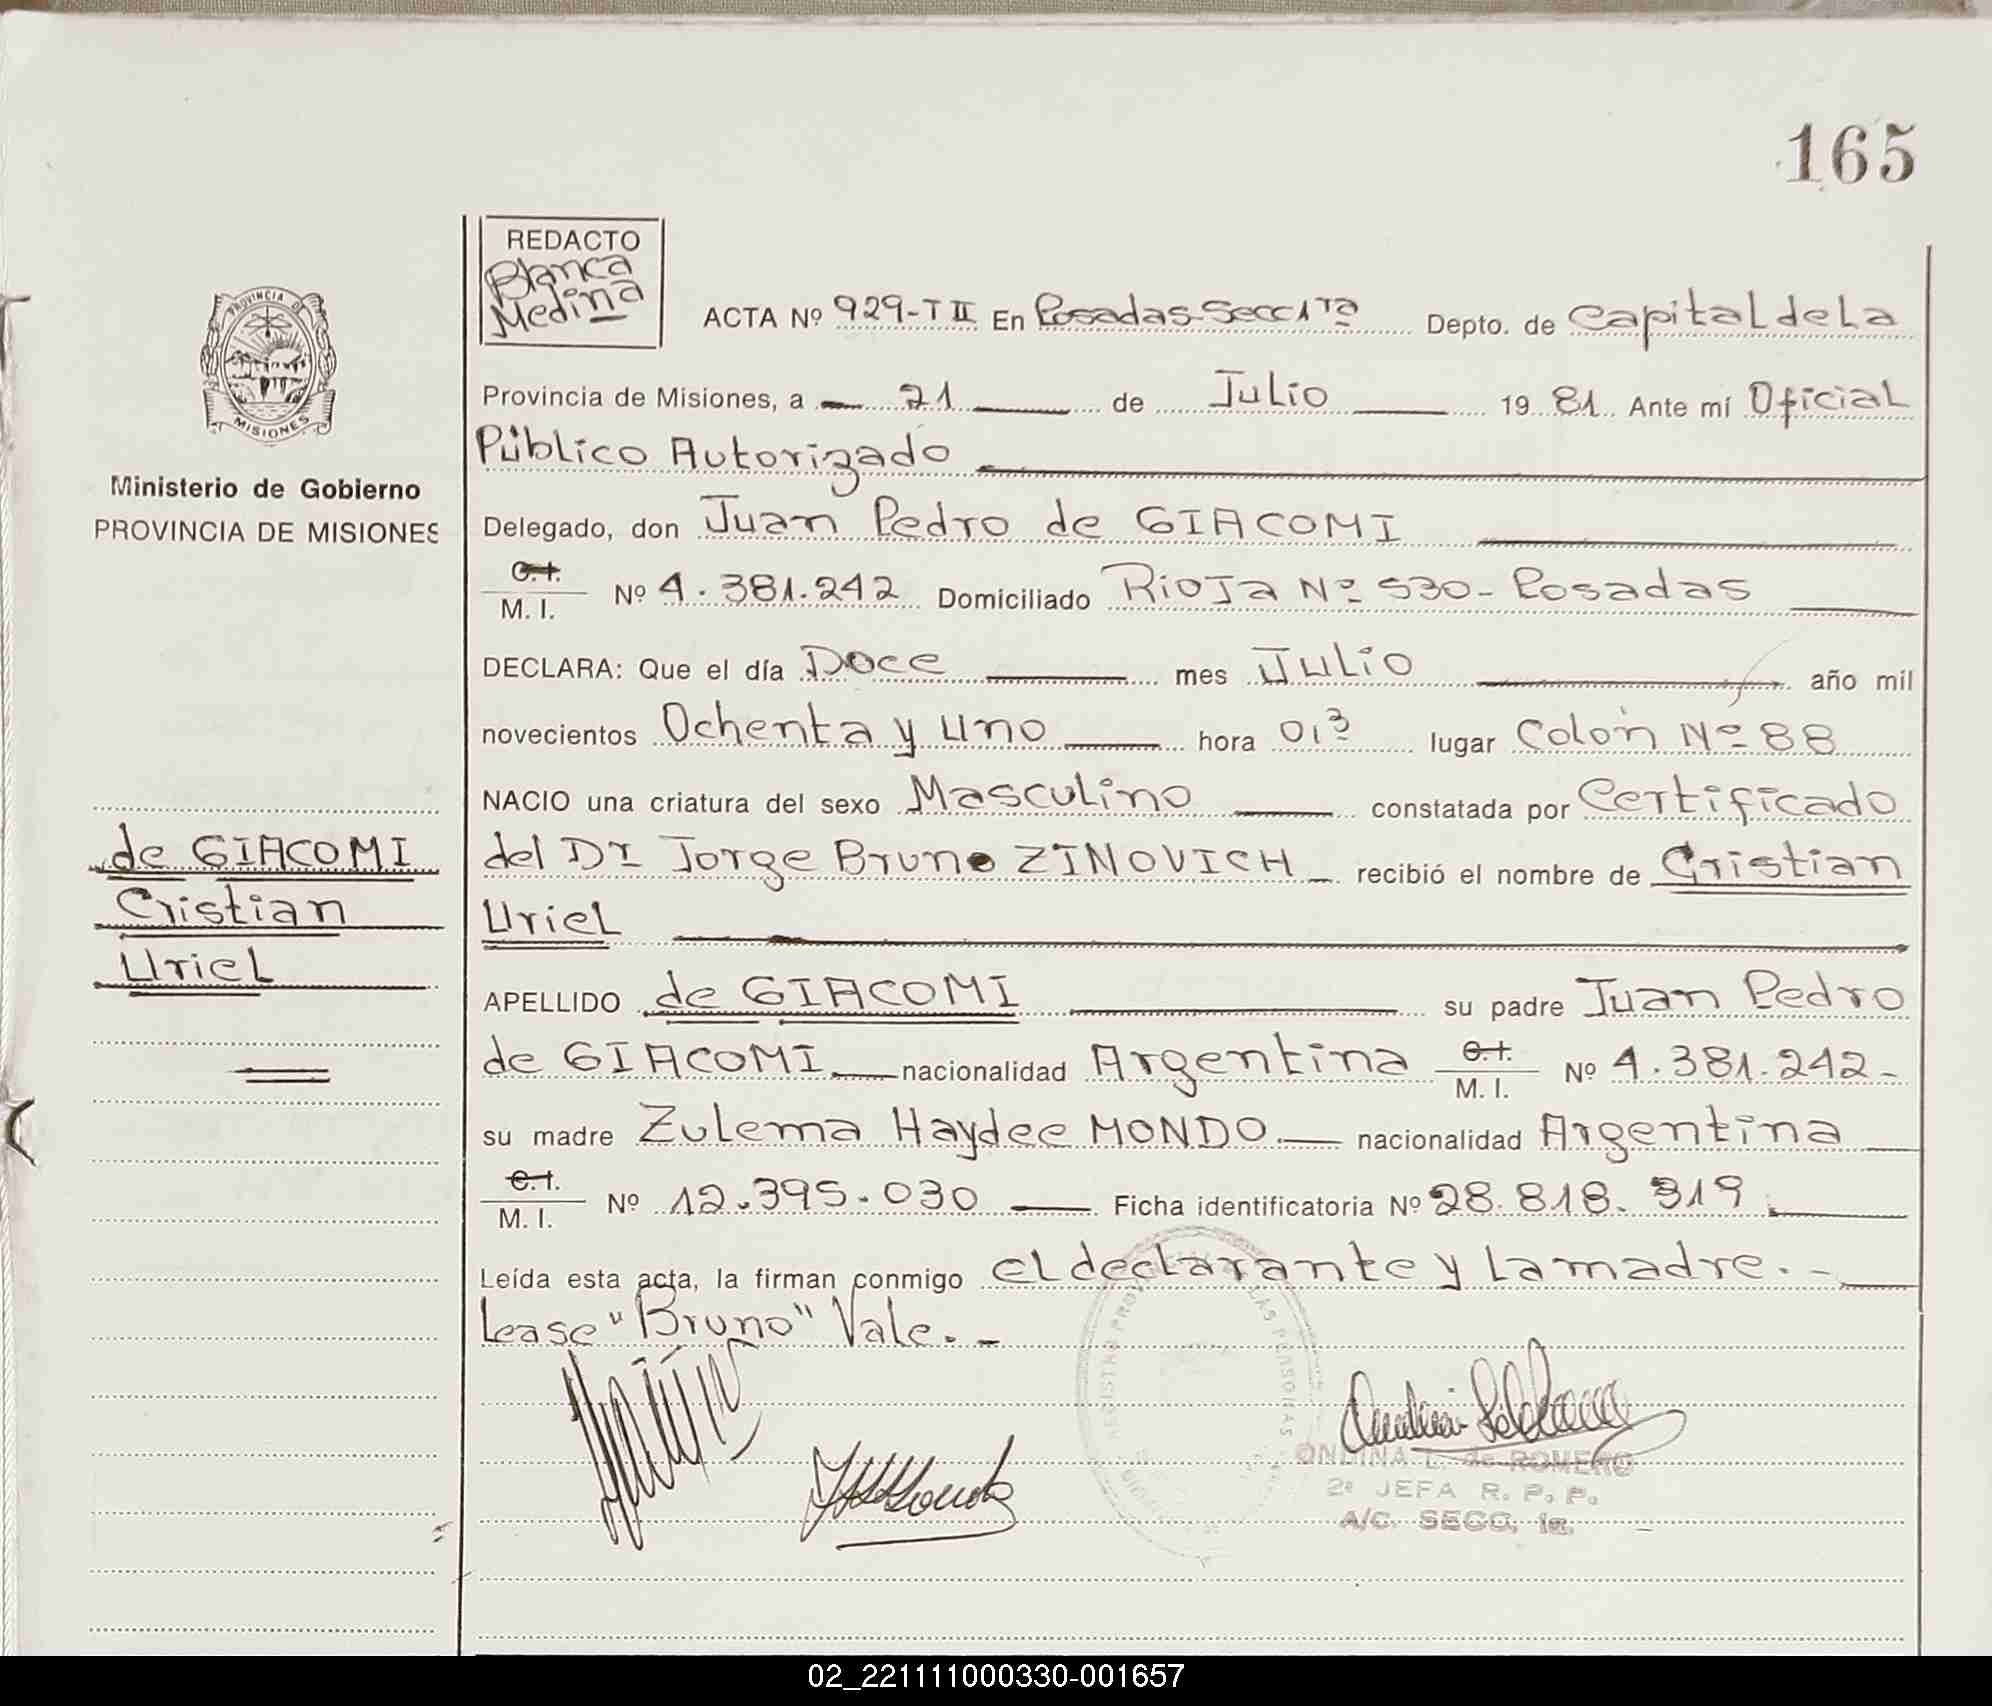 165
REDACTO
Blanca
Medina
PROVINCIA DE
MISIONES
ACTA Nº 929-T II En Posadas-Secc 1ra Depto. de Capital de La
Provincia de Misiones, a 21 de Julio 1981 Ante mí Oficial
Público Autorizado
Ministerio de Gobierno
PROVINCIA DE MISIONES
Delegado, don Juan Pedro de GIACOMI
C.I.
M. I. Nº 4.381.242 Domiciliado Rioja Nº 530- Posadas
DECLARA: Que el día Doce mes Julio año mil
novecientos Ochenta y uno hora 0,3 lugar Colón Nº 88
NACIO una criatura del sexo Masculino constatada por Certificado
de GIACOMI
Cristian
Uriel
del Dr Jorge Bruno ZINOVICH recibió el nombre de Cristian
Uriel
APELLIDO de GIACOMI su padre Juan Pedro
de GIACOMI nacionalidad Argentina C.I.
M. I. Nº 4.381.242-
su madre Zulema Haydee MONDO nacionalidad Argentina
C.I.
M. I. Nº 12.395.030 Ficha identificatoria Nº 28.818.319
Leída esta acta, la firman conmigo el declarante y la madre.-
Lease "Bruno" Vale.-
ONDINA L. de ROMERO
2º JEFA R. P. P.
A/C. SECC. 1a.
02_221111000330-001657